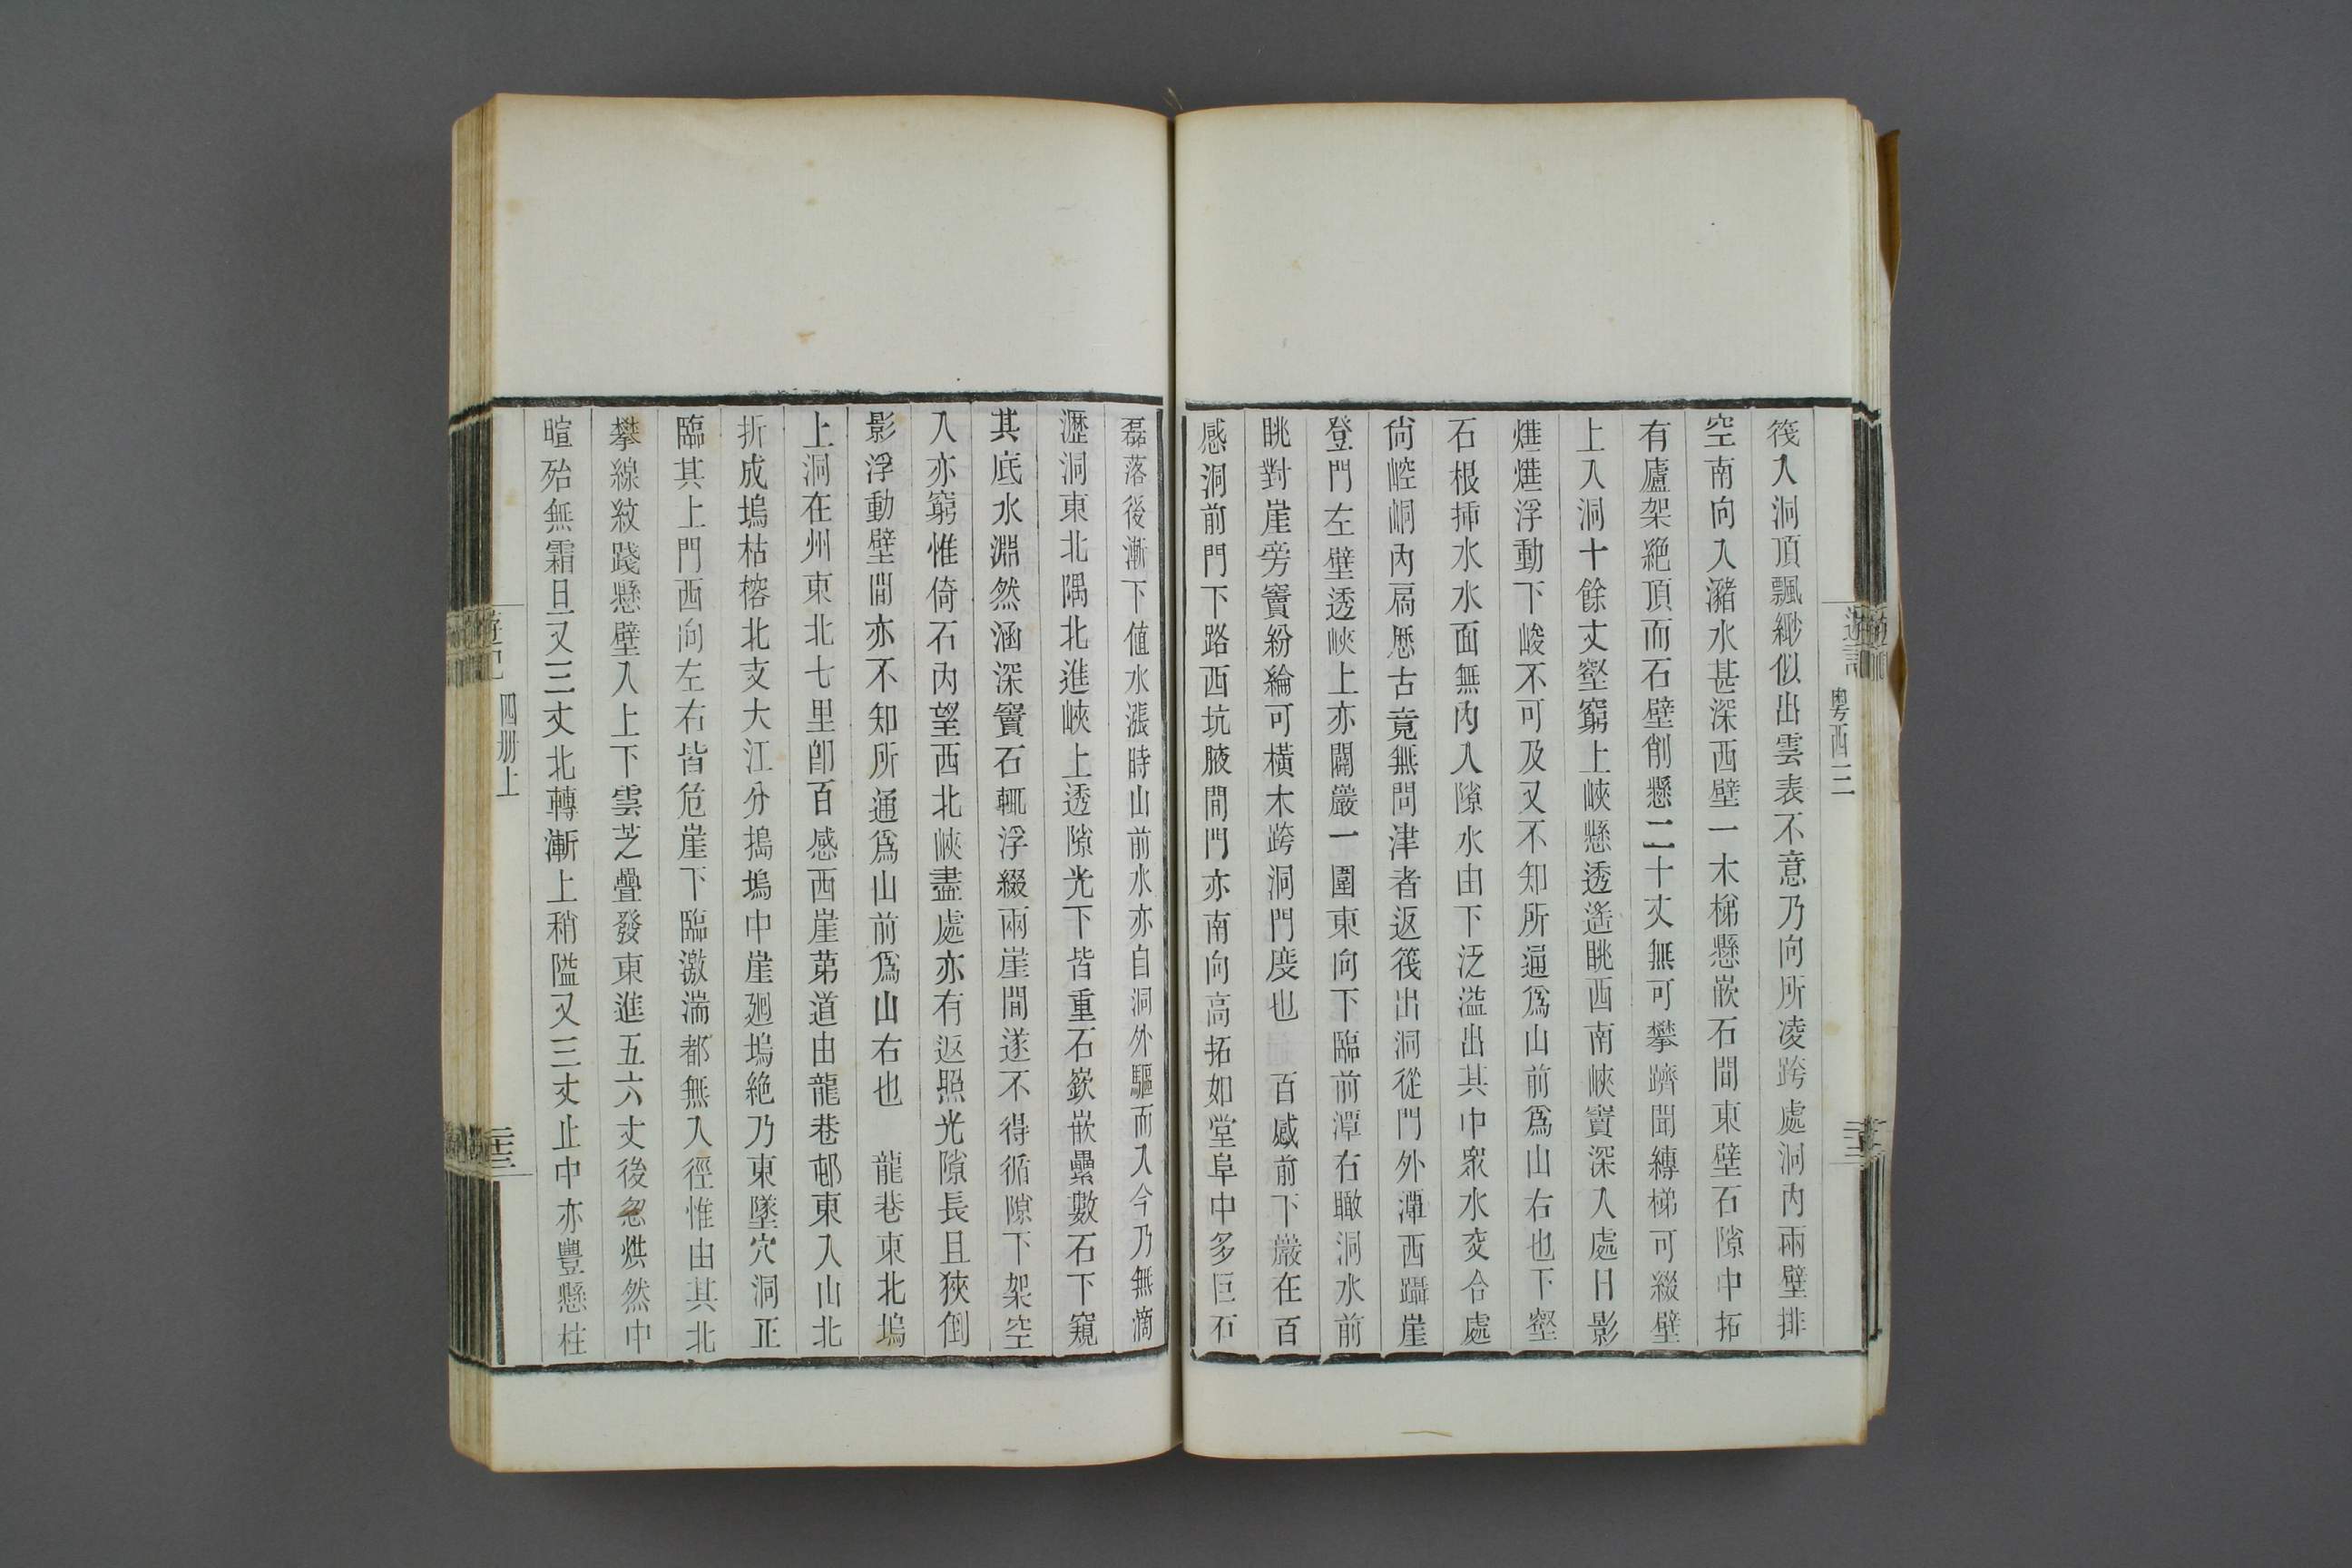 遊記
粵西三
筏入洞頂飄緲似出雲表不意乃向所凌跨處洞內兩壁排
空南向入瀦水甚深西壁一木梯懸嵌石間東壁石隙中拓
有廬架絕頂而石壁削懸二十丈無可攀躋聞縛梯可綴壁
上入洞十餘丈壑窮上峽懸透遙眺西南峽竇深入處日影
熯熯浮動下峻不可及又不知所通爲山前爲山右也下壑
石根揷水水面無內入隙水由下泛溢出其中衆水交合處
尙崆峒內扃歷古竟無問津者返筏出洞從門外潭西躡崖
登門左壁透峽上亦闢巖一圍東向下臨前潭右瞰洞水前
眺對崖旁竇紛綸可橫木跨洞門度也　百感前下巖在百
感洞前門下路西坑腋間門亦南向高拓如堂阜中多巨石
磊落後漸下値水漲時山前水亦自洞外驅而入今乃無滴
瀝洞東北隅北進峽上透隙光下皆重石嶔嵌壘數石下窺
其底水淵然涵深竇石輒浮綴兩崖間遂不得循隙下架空
入亦窮惟倚石內望西北峽盡處亦有返照光隙長且狹倒
影浮動壁間亦不知所通爲山前爲山右也　龍巷東北塢
上洞在州東北七里卽百感西崖第道由龍巷邨東入山北
折成塢枯榕北支大江分搗塢中崖廻塢絕乃東墜穴洞正
臨其上門西向左右皆危崖下臨激湍都無入徑惟由其北
攀線紋踐懸壁入上下雲芝疊發東進五六丈後忽烘然中
暄殆無霜日又三丈北轉漸上稍隘又三丈止中亦豐懸柱
遊記
四册上